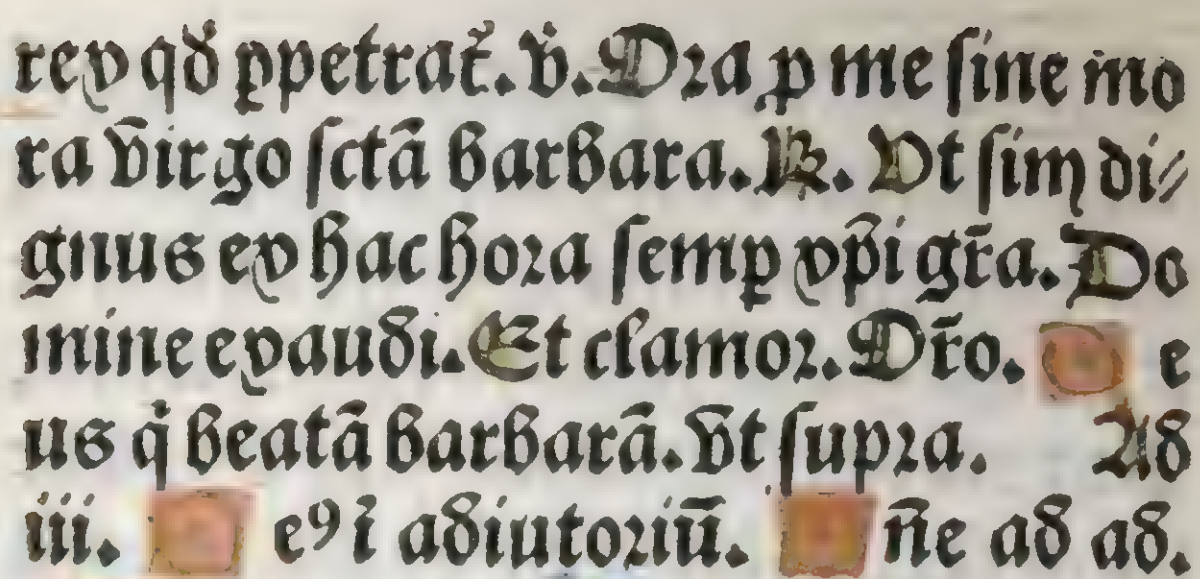 rex qđ ꝑpetraẗ. v̇. Ora ꝓ me ſine mo
ra v̄irgo ſctā barbara. ℟. Vt ſim di⸗
gnus ex hac hora ſemꝑ xp̄i gr̄a. Do
mine exaudi. Et clamor. Or̄o. D e
us q̇ beatā barbarā. V̄t ſupra. Ad
iii. D eꝰ ī adiutoriū. D n̄e ad ad.